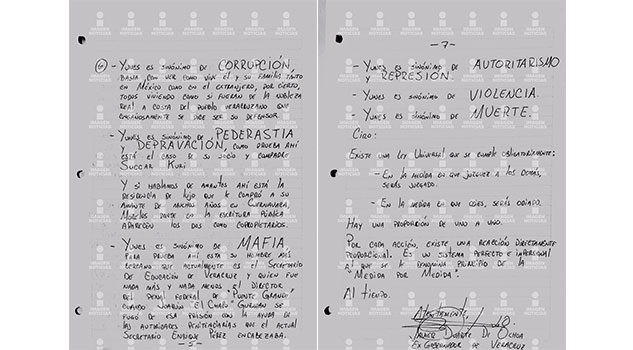 6 - YUNES ES SINÓNIMO DE CORRUPCIÓN,
BASTA CON VER COMO VIVE ÉL Y SU FAMILIA TANTO
EN MÉXICO COMO EN EL EXTRANJERO, POR CIERTO,
TODOS VIVIENDO COMO SI FUERAN DE LA NOBLEZA
REAL A COSTA DEL PUEBLO VERACRUZANO QUE
ENGAÑOSAMENTE SE DICE SER SU DEFENSOR.
- YUNES ES SINÓNIMO DE PEDERASTIA
Y DEPRAVACIÓN, COMO PRUEBA AHÍ
ESTÁ EL CASO DE SU SOCIO Y COMPADRE
SUCCAR KURI
Y SI HABLAMOS DE AMANTES AHÍ ESTÁ LA
RESIDENCIA DE LUJO QUE LE COMPRÓ A SU
AMANTE DE MUCHOS AÑOS EN CUERNAVACA,
MORELOS DONDE EN LA ESCRITURA PÚBLICA
APARECEN LOS DOS COMO COPROPIETARIOS.
- YUNES ES SINÓNIMO DE MAFIA,
PARA PRUEBA AHÍ ESTA SU HOMBRE MÁS
CERCANO QUE ACTUALMENTE ES EL SECRETARIO
DE EDUCACIÓN DE VERACRUZ Y QUIEN FUE
NADA MÁS Y NADA MENOS EL DIRECTOR
DEL PENAL FEDERAL DE "PUENTE GRANDE"
CUANDO JOAQUÍN "EL CHAPO" GUZMÁN SE
FUGÓ DE ESA PRISIÓN CON LA AYUDA DE
LAS AUTORIDADES PENITENCIARIAS QUE EL ACTUAL
SECRETARIO ENRIQUE PÉREZ ENCABEZABA.
- 7 -
- YUNES ES SINÓNIMO DE AUTORITARISMO
Y REPRESIÓN.
- YUNES ES SINÓNIMO DE VIOLENCIA.
- YUNES ES SINÓNIMO DE MUERTE.
CIRO:
EXISTE UNA LEY UNIVERSAL QUE SE CUMPLE OBLIGATORIAMENTE:
- EN LA MEDIDA EN QUE JUZGUES A LOS DEMÁS,
SERÁS JUZGADO.
- EN LA MEDIDA EN QUE ODIES, SERÁS ODIADO.
HAY UNA PROPORCIÓN DE UNO A UNO.
POR CADA ACCIÓN, EXISTE UNA REACCIÓN DIRECTAMENTE
PROPORCIONAL. ES UN SISTEMA PERFECTO E IMPERSONAL
AL QUE SE LE DENOMINA PRINCIPIO DE LA
"MEDIDA POR MEDIDA".
AL TIEMPO.
ATENTAMENTE,
JAVIER DUARTE DE OCHOA
EX GOBERNADOR DE VERACRUZ
IMAGEN
NOTICIAS